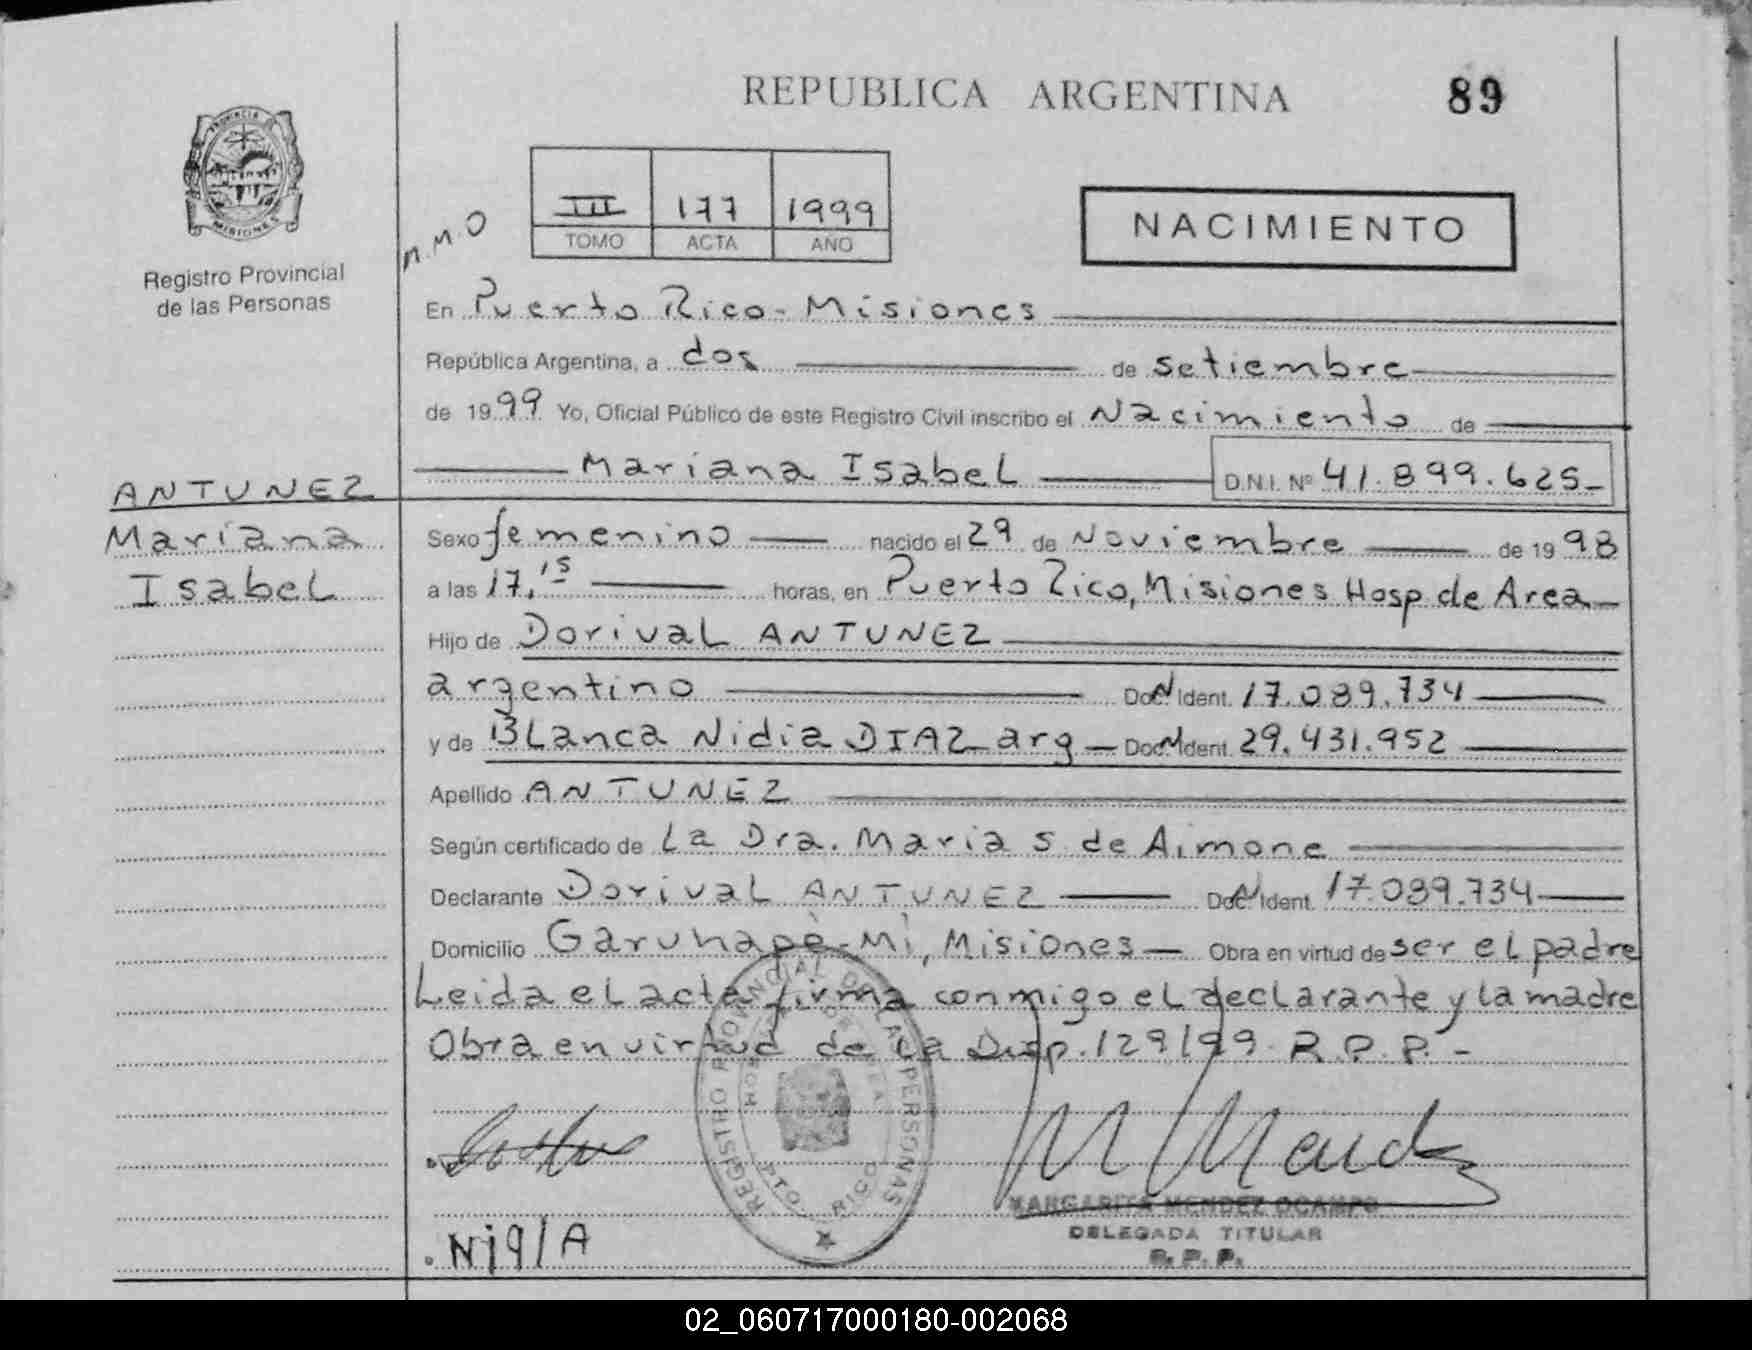 REPUBLICA ARGENTINA 89
PROVINCIA DE MISIONES
Registro Provincial
de las Personas
M.M.O
III 177 1999
TOMO ACTA AÑO
NACIMIENTO
En Puerto Rico - Misiones
República Argentina, a dos de setiembre
de 1999 Yo, Oficial Público de este Registro Civil inscribo el Nacimiento de
Mariana Isabel D.N.I. Nº 41.899.625-
ANTUNEZ
Mariana
Isabel
Sexo femenino nacido el 29 de Noviembre de 1998
a las 17,15 horas, en Puerto Rico, Misiones Hosp de Area
Hijo de Dorival ANTUNEZ
argentino Doc Ident. 17.089.734
y de Blanca Nidia DIAZ arg Doc Ident. 29.431.952
Apellido ANTUNEZ
Según certificado de La Dra. Maria S de Aimone
Declarante Dorival ANTUNEZ Doc Ident. 17.089.734
Domicilio Garuhapé-Mi, Misiones Obra en virtud de ser el padre
Leida el acta firma conmigo el declarante y la madre
Obra en virtud de la Disp. 129/99 R.P.P. -
REGISTRO PROVINCIAL DE LAS PERSONAS
PTO. RICO
MARGARITA MENDEZ OCAMPO
DELEGADA TITULAR
R. P. P.
02_060717000180-002068